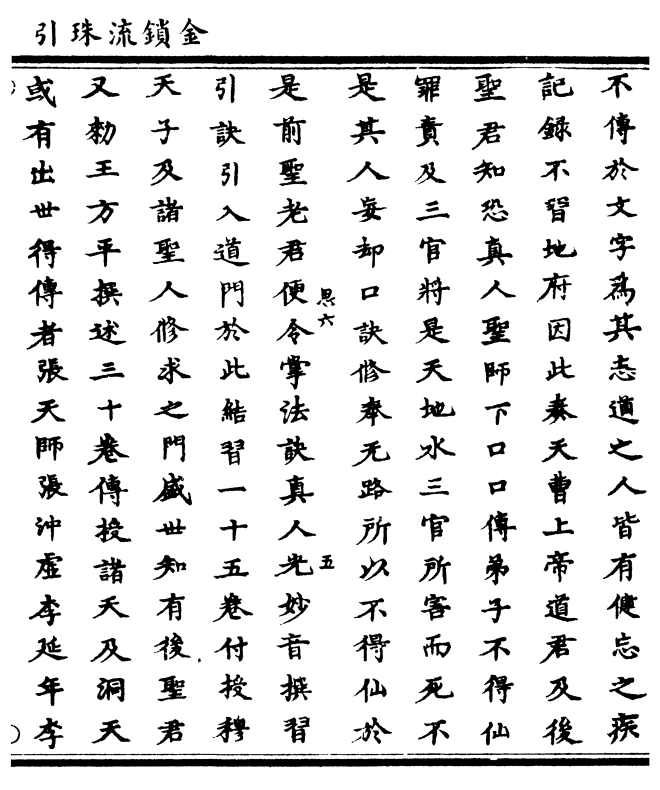 金鎖流珠引
不傳於文字為其志道之人皆有健忘之疾
記錄不習地府因此奏天曹上帝道君及後
聖君知恐真人聖師下口口傳弟子不得仙
罪責及三官將是天地水三官所害而死不
是其人妄却口訣修奉无路所以不得仙於
恩六
五
是前聖老君便令掌法訣真人光妙音撰習
引訣引入道門於此結習一十五卷付授穆
天子及諸聖人修求之門盛世知有後聖君
又勑王方平撰述三十卷傳授諸天及洞天
或有出世得傳者張天師張沖虛李延年李